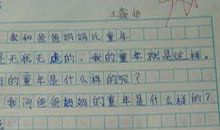 王鑫怡
我和爸爸妈妈比童年
是无忧无虑的，我的童年就是这样。
的童年是什么样的呢？
我问爸爸妈妈的童年是什么样的？